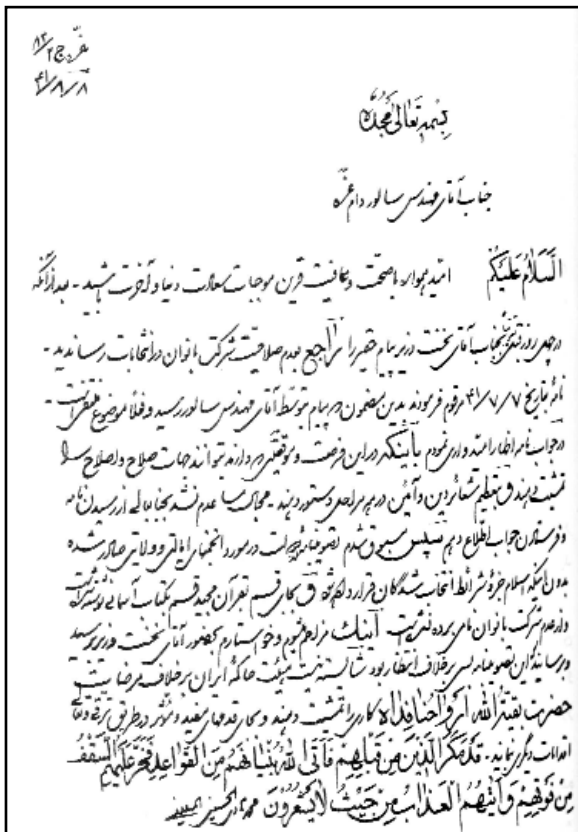 ۴۱/۸/۸
بسمه تعالی مجده
جناب آقای مهندس سالور دام عزه
السلام علیکم امید همواره با صحت و عافیت قرین موجبات سعادت دنیا و آخرت باشید - بعد از آنکه
در چهل روز قبل جناب آقای نخست وزیر پیام حقیر را راجع بعدم صلاحیت شرکت بانوان در انتخابات رساندید -
نامه بتاریخ ۴۱/۷/۷ مرقوم فرمودند بدین مضمون پیام توسط آقای مهندس سالور رسید و فعلا موضوع منتفی است -
در جواب نامه اظهار امیدواری نمودم باینکه در این فرصت و موقعی که دارند بتوانند جهات صلاح و اصلاح را
تمشیت دهند و تعظیم شعائر دین و آئین در هر مراحلی دستور دهند - مجال عدم نشد بجنابعالی از رسیدن نامه
و فرستادن جواب اطلاع دهم سپس مسبوق شدم تصویبنامه دولت در مورد انجمنهای ایالتی و ولایتی صادر شده
بدون اینکه اسلام جزء شرائط انتخاب شدگان قرار داده شود و بجای قسم بقرآن مجید قسم بکتاب آسمانی نوشته شده
و از عدم شرکت بانوان نامی برده نشده است اینک مزاحم میشوم و خواستارم بحضور آقای نخست وزیر برسید
و برسانید این تصویبنامه بس برخلاف انتظار بود شایسته نیست هیئت حاکمه ایران برخلاف مرضات
حضرت بقیة الله ارواحنا فداه کاری را تمشیت دهند و بجای قدمهای مفید و مؤثر در طریق ترقی و تعالی
اقدامات دیگری نمایند - قد مکر الذین من قبلهم فاتی الله بنیانهم من القواعد فخر علیهم السقف
من فوقهم و اتیهم العذاب من حیث لا یشعرون محمد هادی الحسینی المیلانی